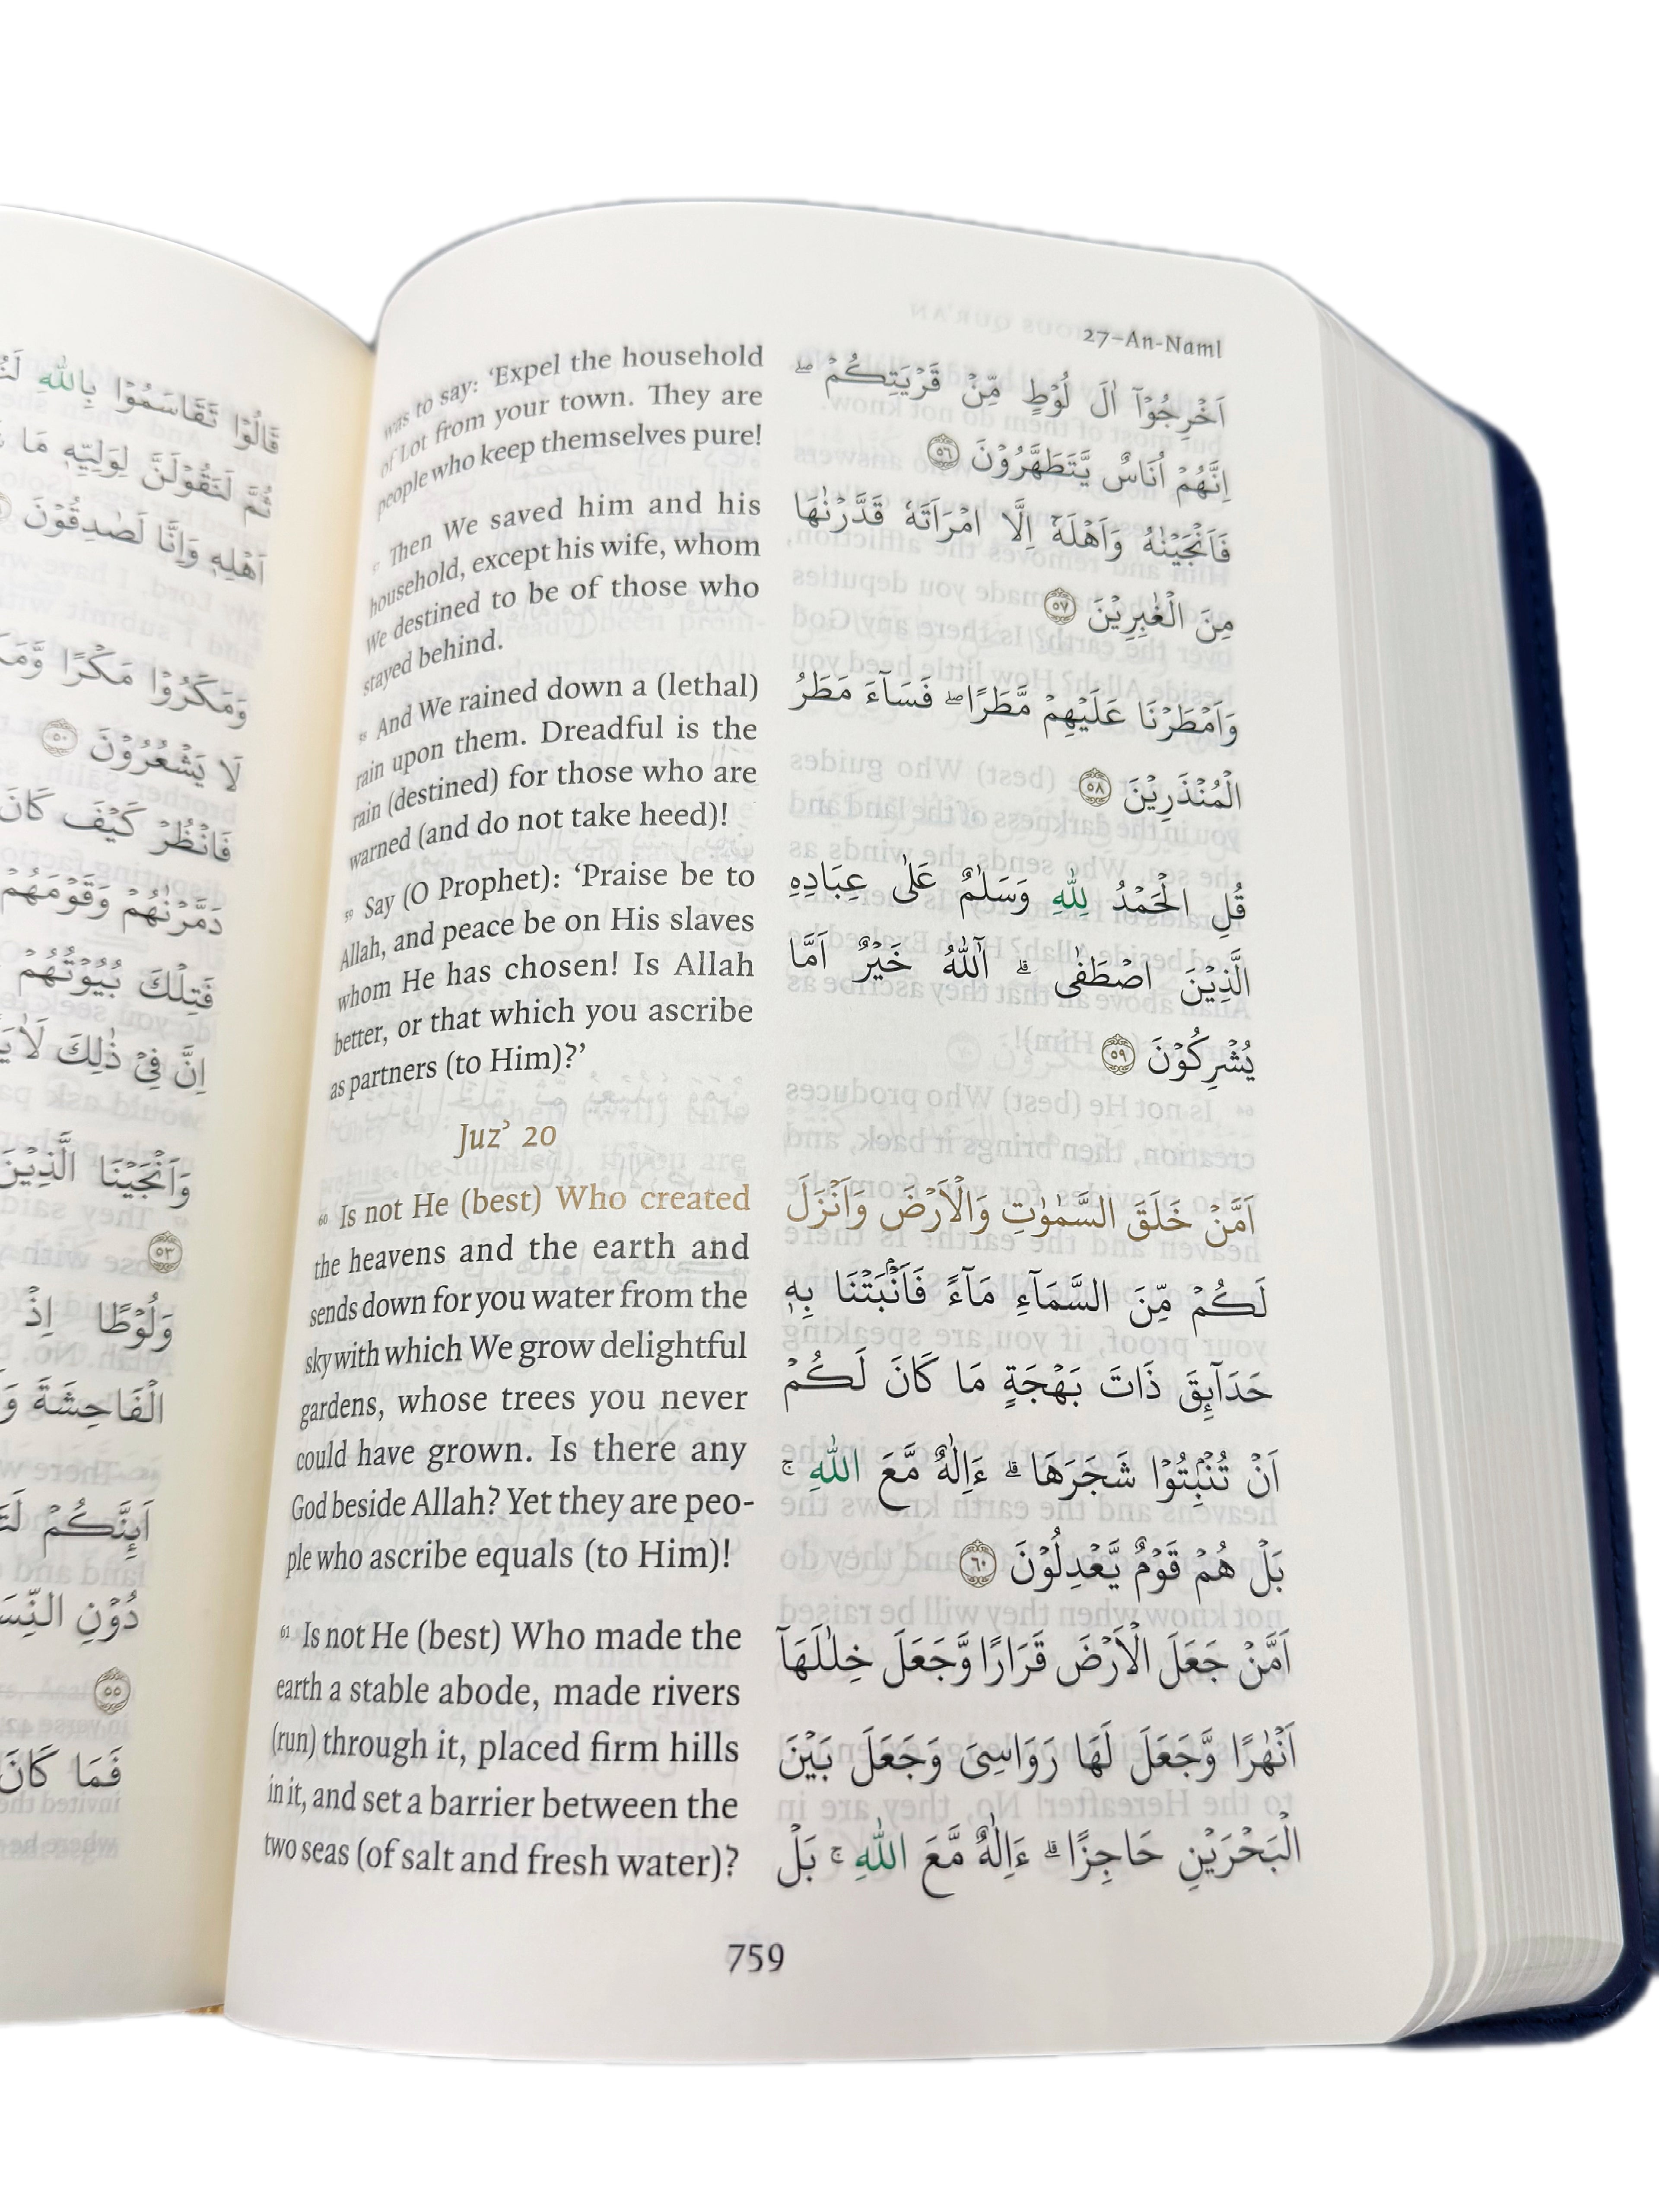 قَالُوۡا تَقَاسَمُوۡا بِاللّٰهِ
ثُمَّ لَنَقُوۡلَنَّ لِوَلِيِّهٖ مَا
اَهۡلِهٖ وَاِنَّا لَصٰدِقُوۡنَ
وَمَكَرُوۡا مَكۡرًا
لَا يَشۡعُرُوۡنَ ٥٠
فَانْظُرۡ كَيۡفَ كَانَ
دَمَّرۡنٰهُمۡ وَقَوۡمَهُمۡ
فَتِلۡكَ بُيُوۡتُهُمۡ
اِنَّ فِىۡ ذٰلِكَ
وَاَنۡجَيۡنَا الَّذِيۡنَ
٥٣
وَلُوۡطًا اِذۡ
الۡفَاحِشَةَ
اَٮِٕنَّكُمۡ
دُوۡنِ
٥٥
فَمَا كَانَ
27–An-Naml
was to say: ‘Expel the household
of Lot from your town. They are
people who keep themselves pure!
57 Then We saved him and his
household, except his wife, whom
We destined to be of those who
stayed behind.
58 And We rained down a (lethal)
rain upon them. Dreadful is the
rain (destined) for those who are
warned (and do not take heed)!
59 Say (O Prophet): ‘Praise be to
Allah, and peace be on His slaves
whom He has chosen! Is Allah
better, or that which you ascribe
as partners (to Him)?’
Juz’ 20
60 Is not He (best) Who created
the heavens and the earth and
sends down for you water from the
sky with which We grow delightful
gardens, whose trees you never
could have grown. Is there any
God beside Allah? Yet they are peo-
ple who ascribe equals (to Him)!
61 Is not He (best) Who made the
earth a stable abode, made rivers
(run) through it, placed firm hills
in it, and set a barrier between the
two seas (of salt and fresh water)?
اَخۡرِجُوۡۤا اٰلَ لُوۡطٍ مِّنۡ قَرۡيَتِكُمۡ‌ۖ
اِنَّهُمۡ اُنَاسٌ يَّتَطَهَّرُوۡنَ ٥٦
فَاَنۡجَيۡنٰهُ وَاَهۡلَهٗۤ اِلَّا امۡرَاَتَهٗ قَدَّرۡنٰهَا
مِنَ الۡغٰبِرِيۡنَ ٥٧
وَاَمۡطَرۡنَا عَلَيۡهِمۡ مَّطَرًا‌ۖ فَسَآءَ مَطَرُ
الۡمُنۡذَرِيۡنَ ٥٨
قُلِ الۡحَمۡدُ لِلّٰهِ وَسَلٰمٌ عَلٰى عِبَادِهِ
الَّذِيۡنَ اصۡطَفٰىؕ ۗ آٰللّٰهُ خَيۡرٌ اَمَّا
يُشۡرِكُوۡنَ ٥٩
اَمَّنۡ خَلَقَ السَّمٰوٰتِ وَالۡاَرۡضَ وَاَنۡزَلَ
لَـكُمۡ مِّنَ السَّمَآءِ مَآءً‌ فَاَنۡۢبَتۡنَا بِهٖ
حَدَآٮِٕقَ ذَاتَ بَهۡجَةٍ‌ مَا كَانَ لَـكُمۡ
اَنۡ تُنۡۢبِتُوۡا شَجَرَهَا ۗ ءَاِلٰـهٌ مَّعَ اللّٰهِ‌ ۚ
بَلۡ هُمۡ قَوۡمٌ يَّعۡدِلُوۡنَ ٦٠
اَمَّنۡ جَعَلَ الۡاَرۡضَ قَرَارًا وَّجَعَلَ خِلٰلَهَاۤ
اَنۡهٰرًا وَّجَعَلَ لَهَا رَوَاسِىَ وَجَعَلَ بَيۡنَ
الۡبَحۡرَيۡنِ حَاجِزًا ۗ ءَاِلٰـهٌ مَّعَ اللّٰهِ ۚ بَلۡ
759